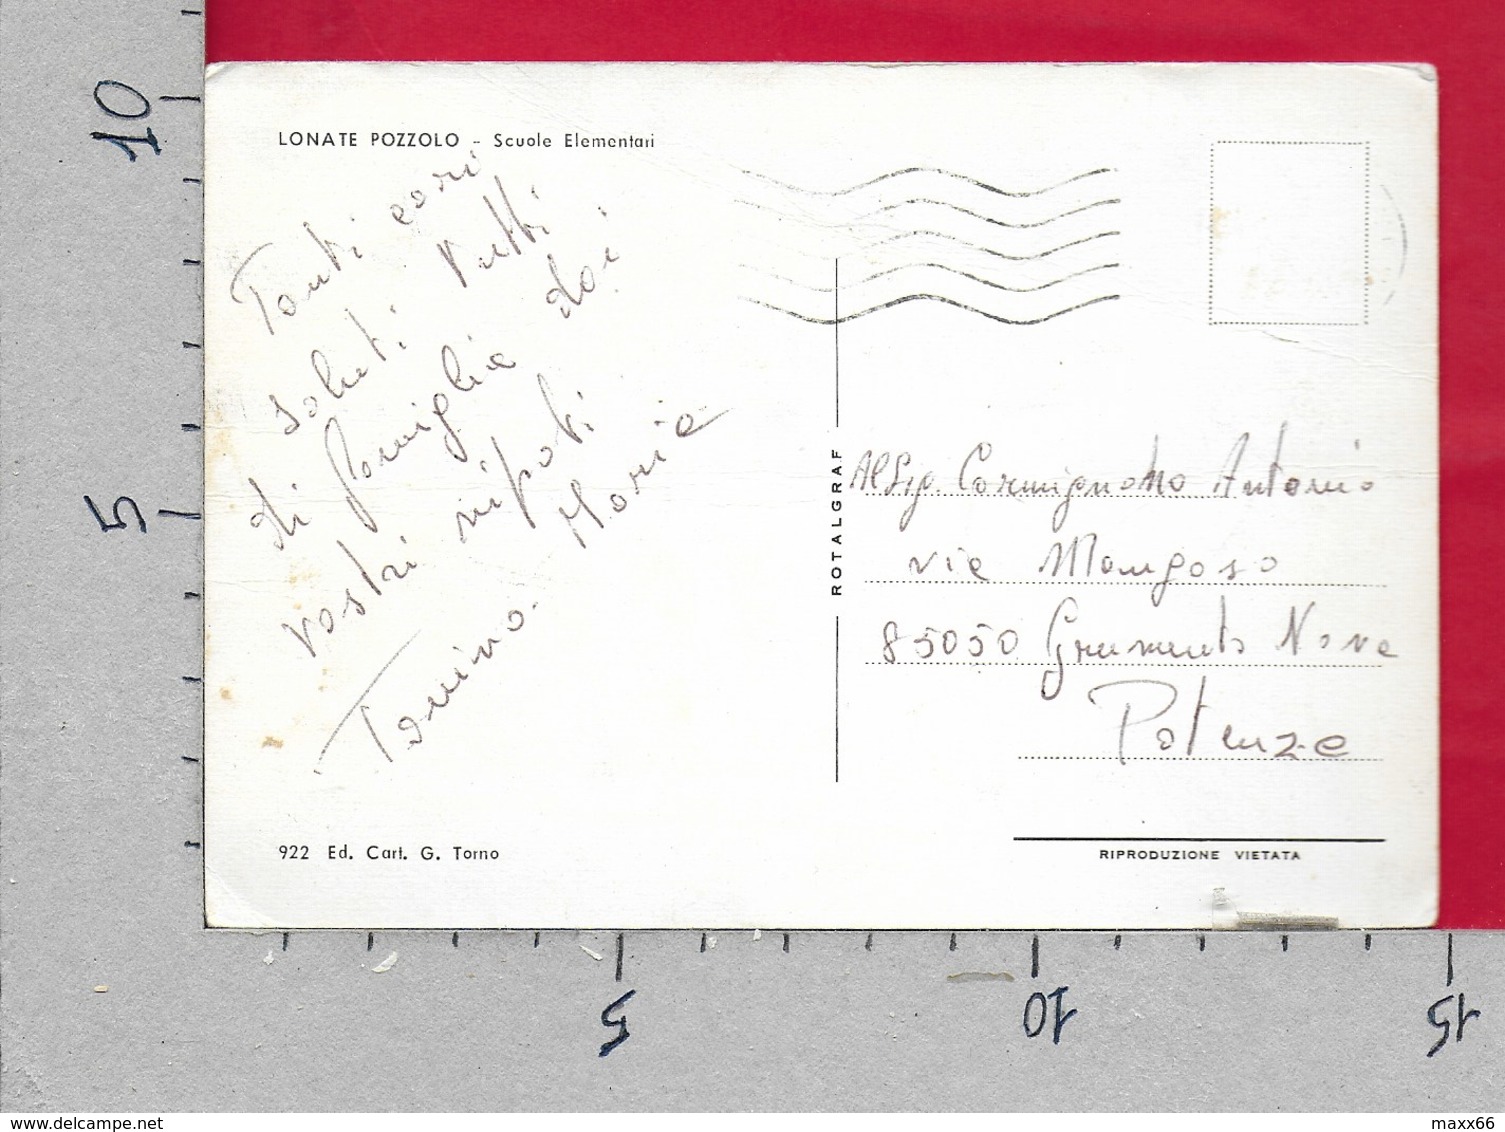 LONATE POZZOLO - Scuole Elementari
Tanti cari
saluti tutti
di famiglia dai
vostri nipoti
Tonino. Maria
922 Ed. Cart. G. Torno
ROTALGRAF
Al Sig. Carmignano Antonio
via Mangoso
85050 Grumento Nova
Potenza
RIPRODUZIONE VIETATA
10
5
5
10
15
www.delcampe.net
maxx66